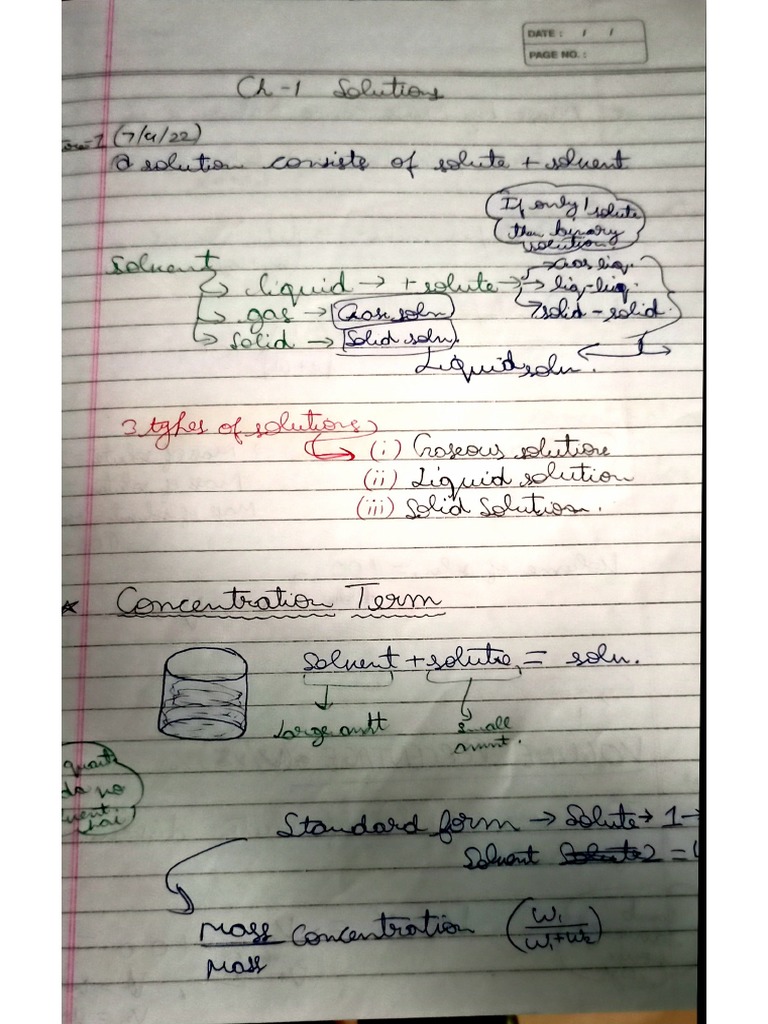 DATE: / /
PAGE NO.:
Ch-1 Solutions
(7/4/22)
A solution consists of solute + solvent
If only 1 solute
then binary
solution
Solvent
→ liquid → + solute → → Gas liq.
→ liq-liq.
→ solid - solid.
→ gas → Gase soln
→ Solid → Solid soln.
Liquid soln.
3 types of solutions
(i) Gaseous solution
(ii) Liquid solution
(iii) Solid Solution.
* Concentration Term
Solvent + solute = soln.
large amt
small
amnt.
Standard form → Solute → 1 →
Solvent 2 =
Mass Concentration (W1/W1+W2)
Mass